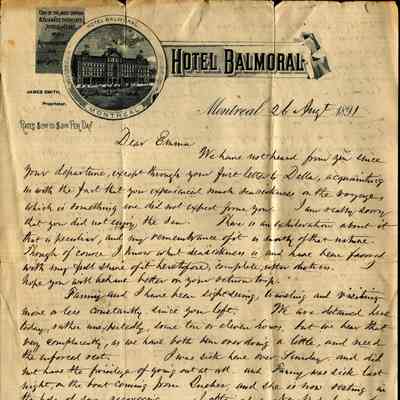 HOTEL BALMORAL
MONTREAL
HOTEL BALMORAL
JAMES SMITH,
Proprietor.
RATES $2.00 TO $3.00 PER DAY
Montreal 26 Augt 1891
Dear Emma
We have not heard from you since
your departure, except through your first letter to Della, acquainting
us with the fact that you experienced much seasickness on the voyage,
which is something one did not expect from you. I am really sorry
that you did not enjoy the sea. There is an exhileration about it
that is peculiar, and my remembrance of it is mostly of that nature.
Though of course I know what seasickness is, and have been favored
with my full share of it heretofore, complete, utter
hope you will behave better on your return trip.
Fannie and I have been sightseeing, traveling and visiting
more or less constantly since you left. We are detained here
today, rather unexpectedly, some ten or eleven hours, but we bear that
very complacently, as we have both been overdoing a little, and need
the enforced rest. I was sick here over Sunday and did
not have the privilege of going out at all and Fanny was sick last
night, on the boat coming from Quebec, and she is now resting in